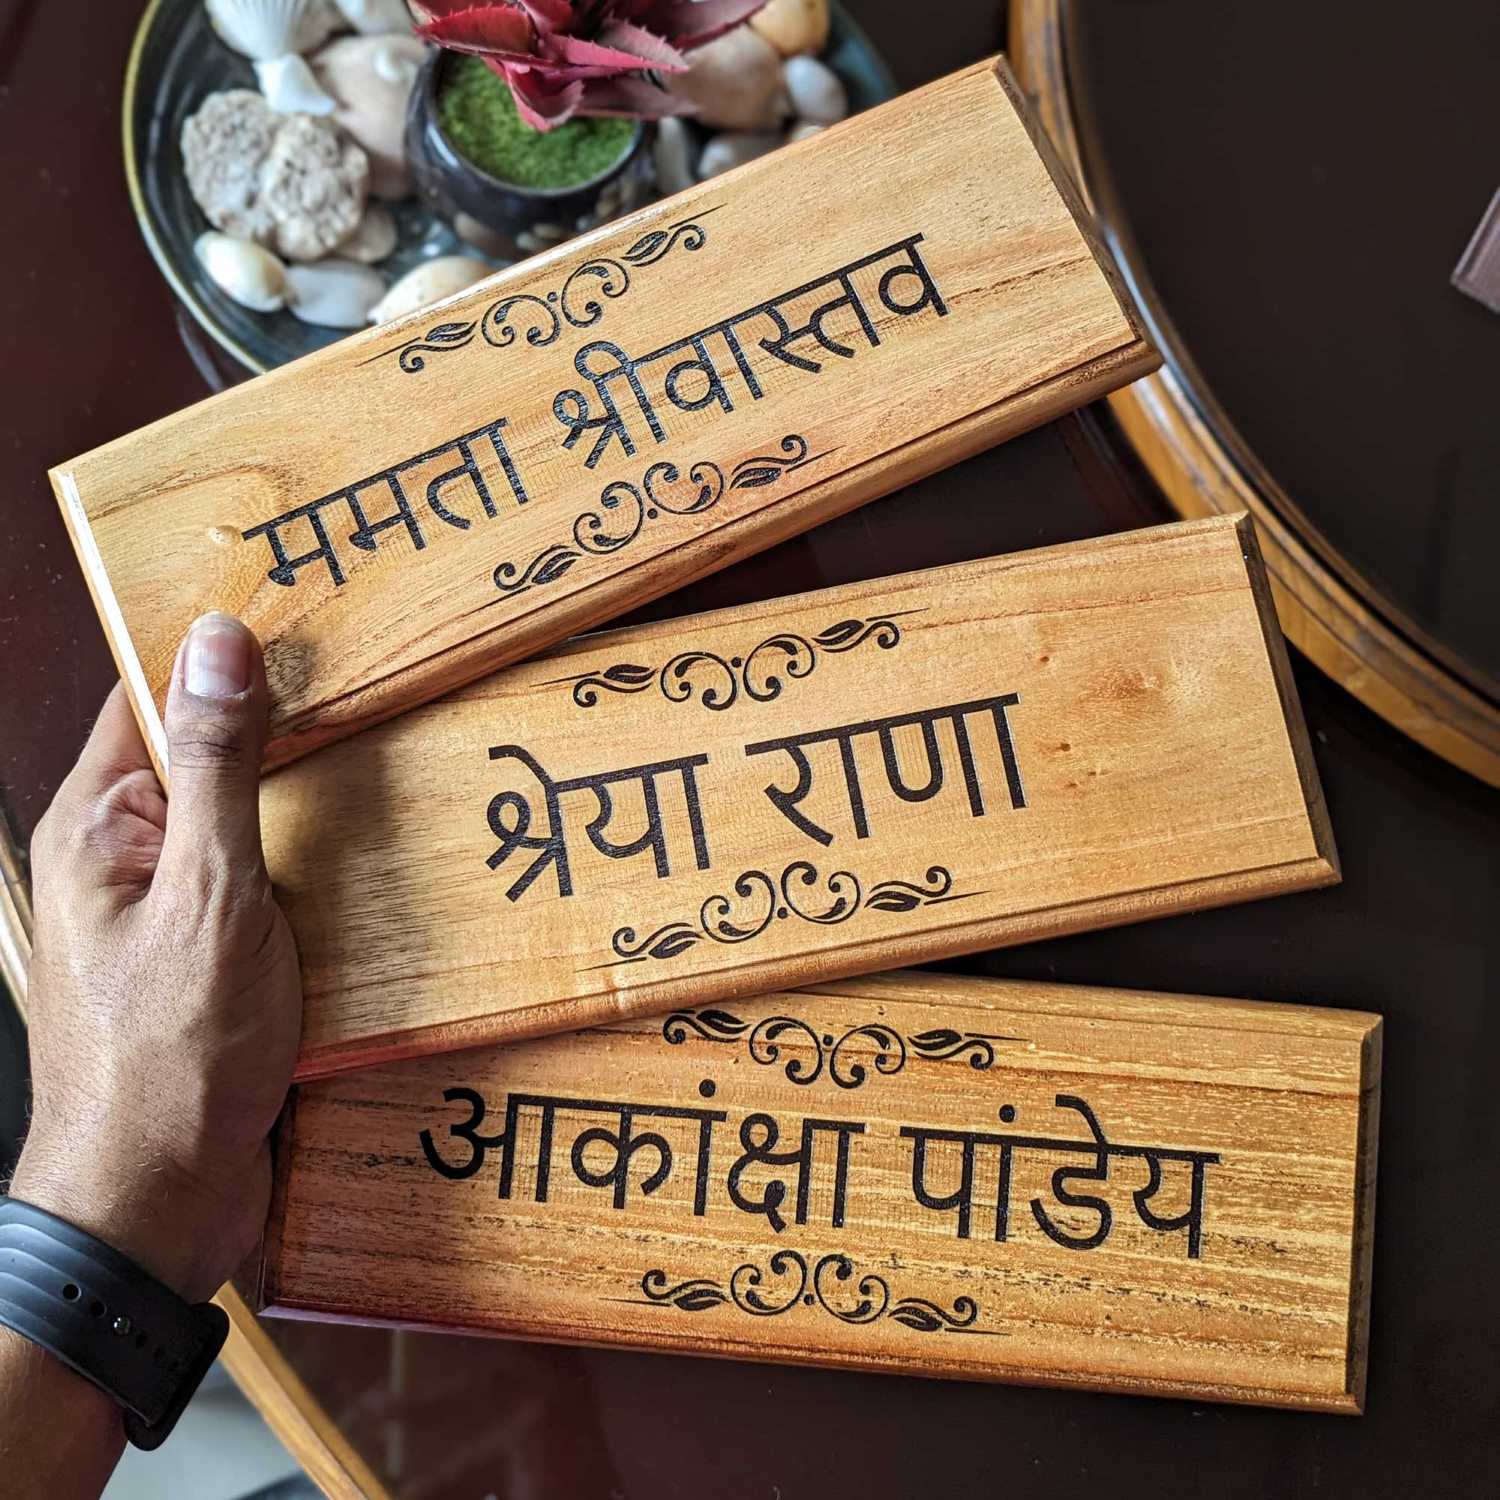 ममता श्रीवास्तव
श्रेया राणा
आकांक्षा पांडेय